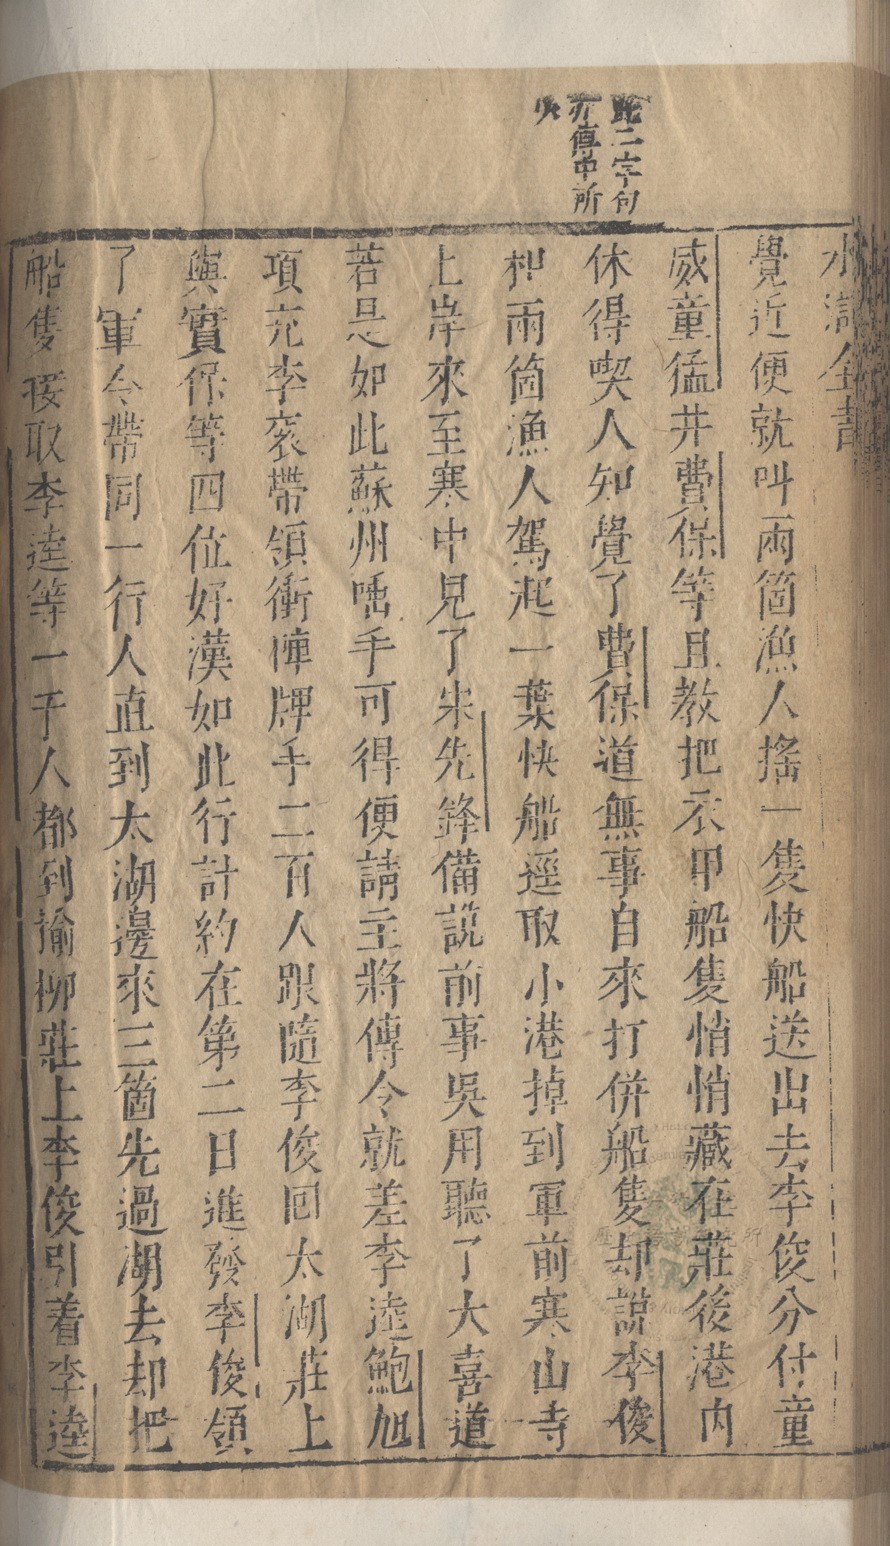 此二字句
亦傳中所
少
水滸全書
覺近便就叫兩箇漁人搖一隻快船送出去李俊分付童
威童猛并費保等且教把衣甲船隻悄悄藏在莊後港內
休得喫人知覺了費保道無事自來打併船隻却說李俊
和兩箇漁人駕起一葉快船逕取小港掉到軍前寒山寺
上岸來至寨中見了宋先鋒備說前事吳用聽了大喜道
若是如此蘇州唾手可得便請主將傳令就差李逵鮑旭
項充李袞帶領衝陣牌手二百人跟隨李俊回太湖莊上
與費保等四位好漢如此行計約在第二日進發李俊領
了軍令帶同一行人直到太湖邊來三箇先過湖去却把
船隻接取李逵等一干人都到榆柳莊上李俊引着李逵